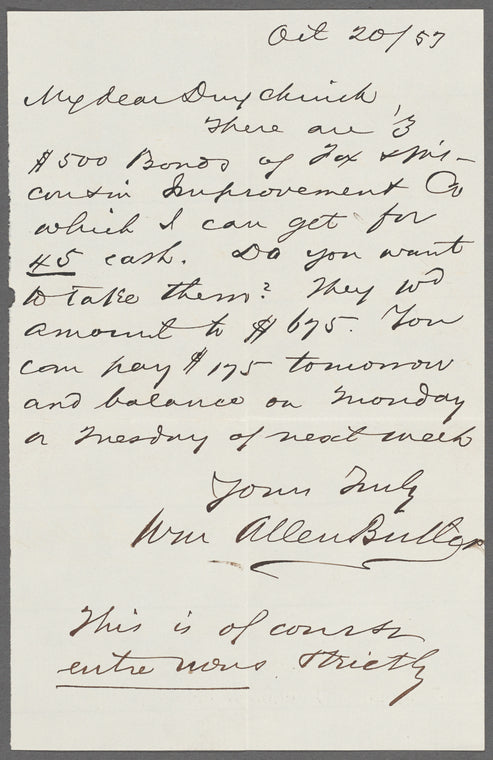 Oct 20/57
My dear Duyckinck
There are 3
$500 Bonds of Fox & Wis-
consin Improvement Co
which I can get for
45 cash. Do you want
to take them? They wd
amount to $675. You
can pay $175 tomorrow
and balance on Monday
or Tuesday of next week
Yours Truly
Wm Allen Butler
This is of course
entre nous strictly